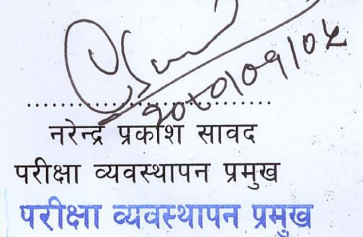 २०८०/०९/०५
नरेन्द्र प्रकाश सावद
परीक्षा व्यवस्थापन प्रमुख
परीक्षा व्यवस्थापन प्रमुख